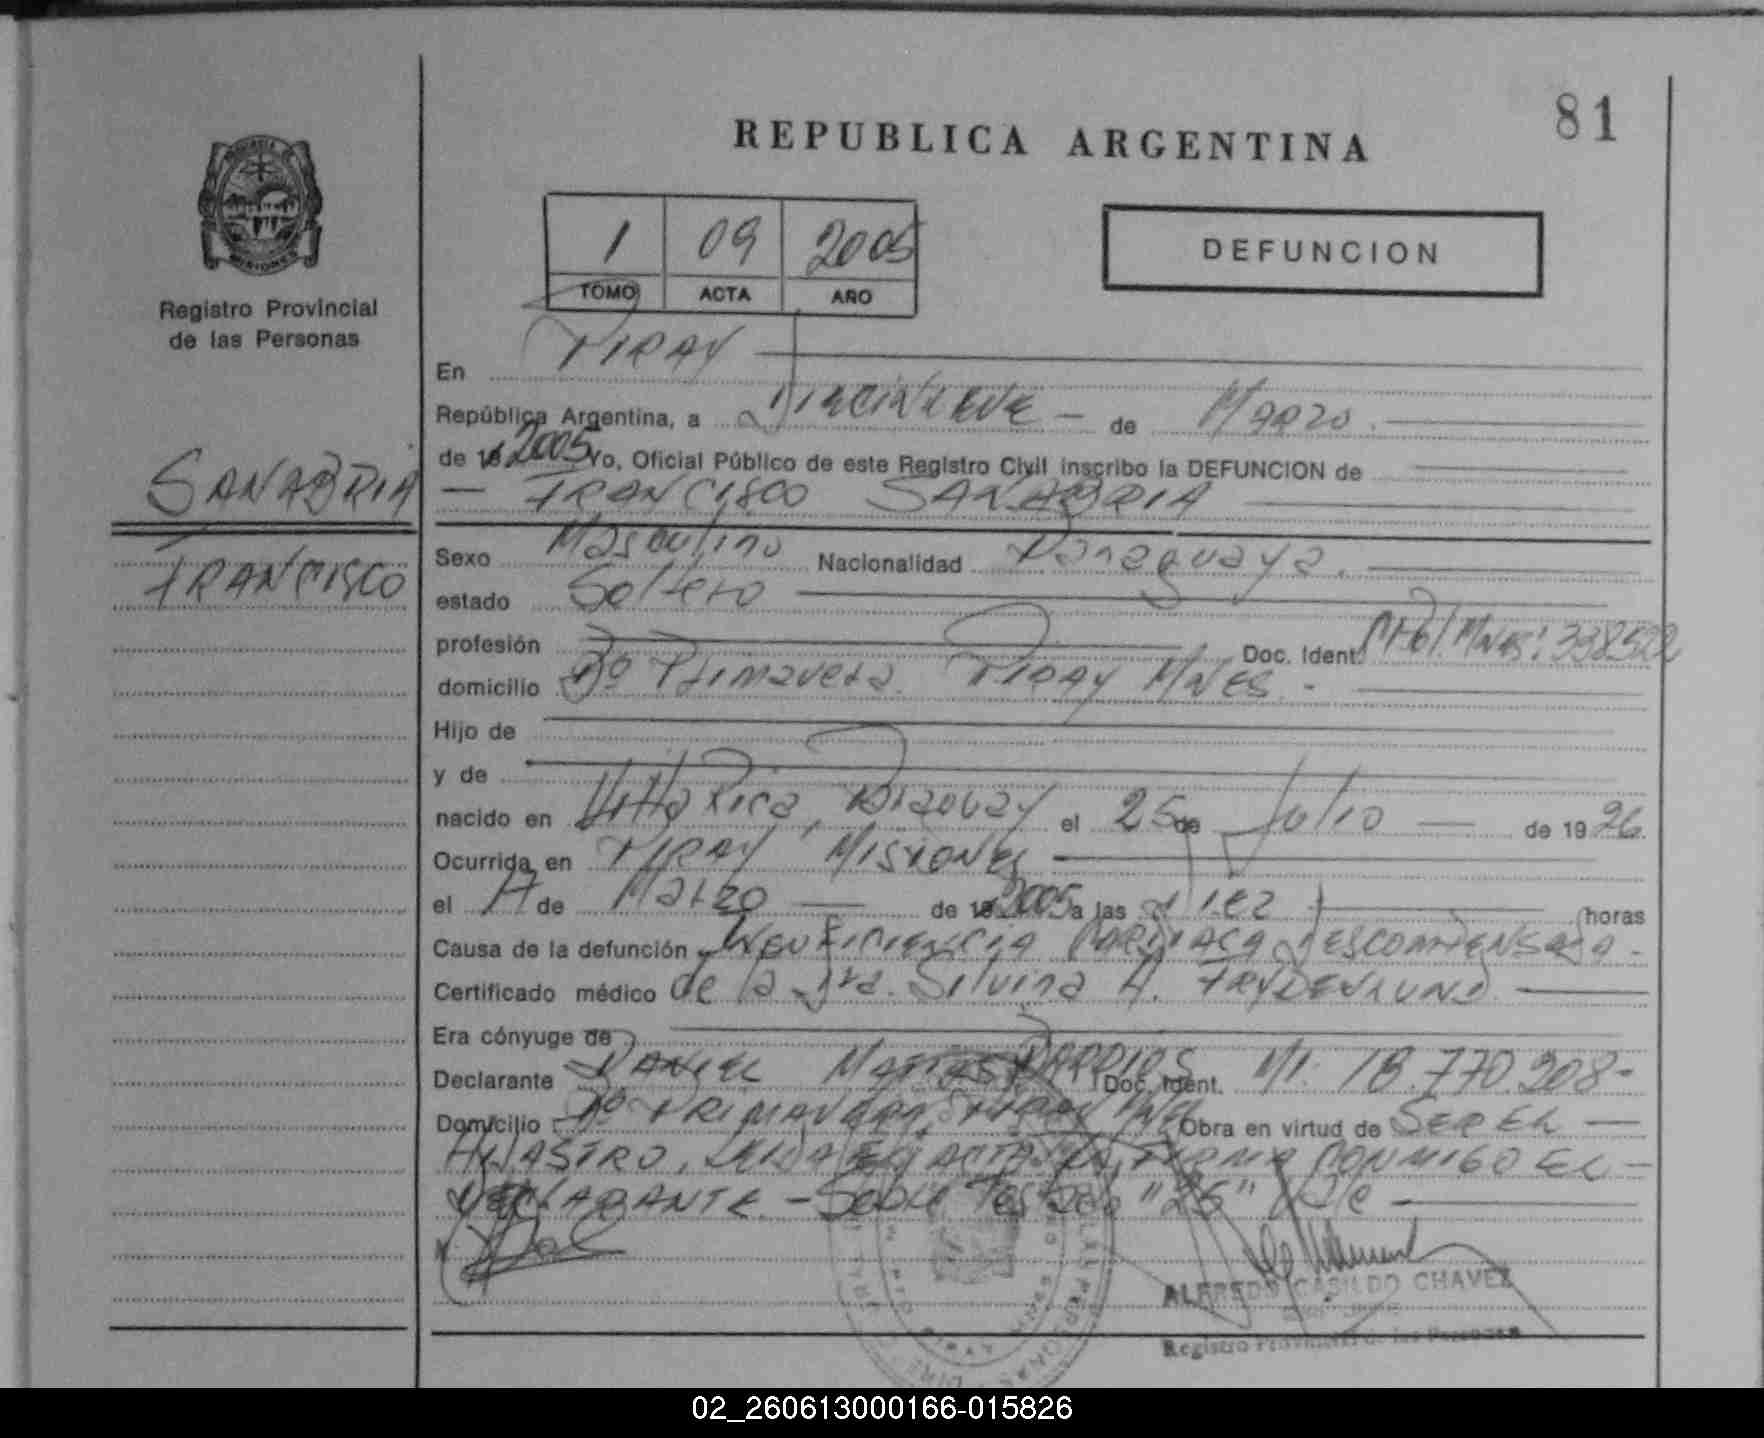 81
REPUBLICA ARGENTINA
1 09 2005
TOMO ACTA AÑO
DEFUNCION
Registro Provincial
de las Personas
SANABRIA
FRANCISCO
En PIRAY
República Argentina, a Diecinueve - de Marzo.
de 19 2005 Yo, Oficial Público de este Registro Civil inscribo la DEFUNCION de
- FRANCISCO SANABRIA
Sexo Masculino Nacionalidad Paraguaya.
estado Soltero
profesión Doc. Ident. Mnes: 338522
domicilio Bº Primavera. PIRAY MNES.-
Hijo de
y de
nacido en Villa Rica, Paraguay el 25 de Julio - de 19 26.
Ocurrida en PIRAY MISIONES
el 17 de Marzo - de 19 2005 a las diez horas
Causa de la defunción Insuficiencia CARDIACA DESCOMPENSADA-
Certificado médico de la Dra. Silvina A. FRYDENLUND
Era cónyuge de
Declarante DANIEL BARRIOS Doc. Ident. MI. 18.770.208-
Domicilio Bº PRIMAVERA, PIRAY Obra en virtud de SER EL -
HIJASTRO, LEIDA EL ACTA LA FIRMA CONMIGO EL -
DECLARANTE.- Sobre Testado "25" Vale
ALFREDO CASILDO CHAVEZ
Registro Provincial de las Personas
02_260613000166-015826